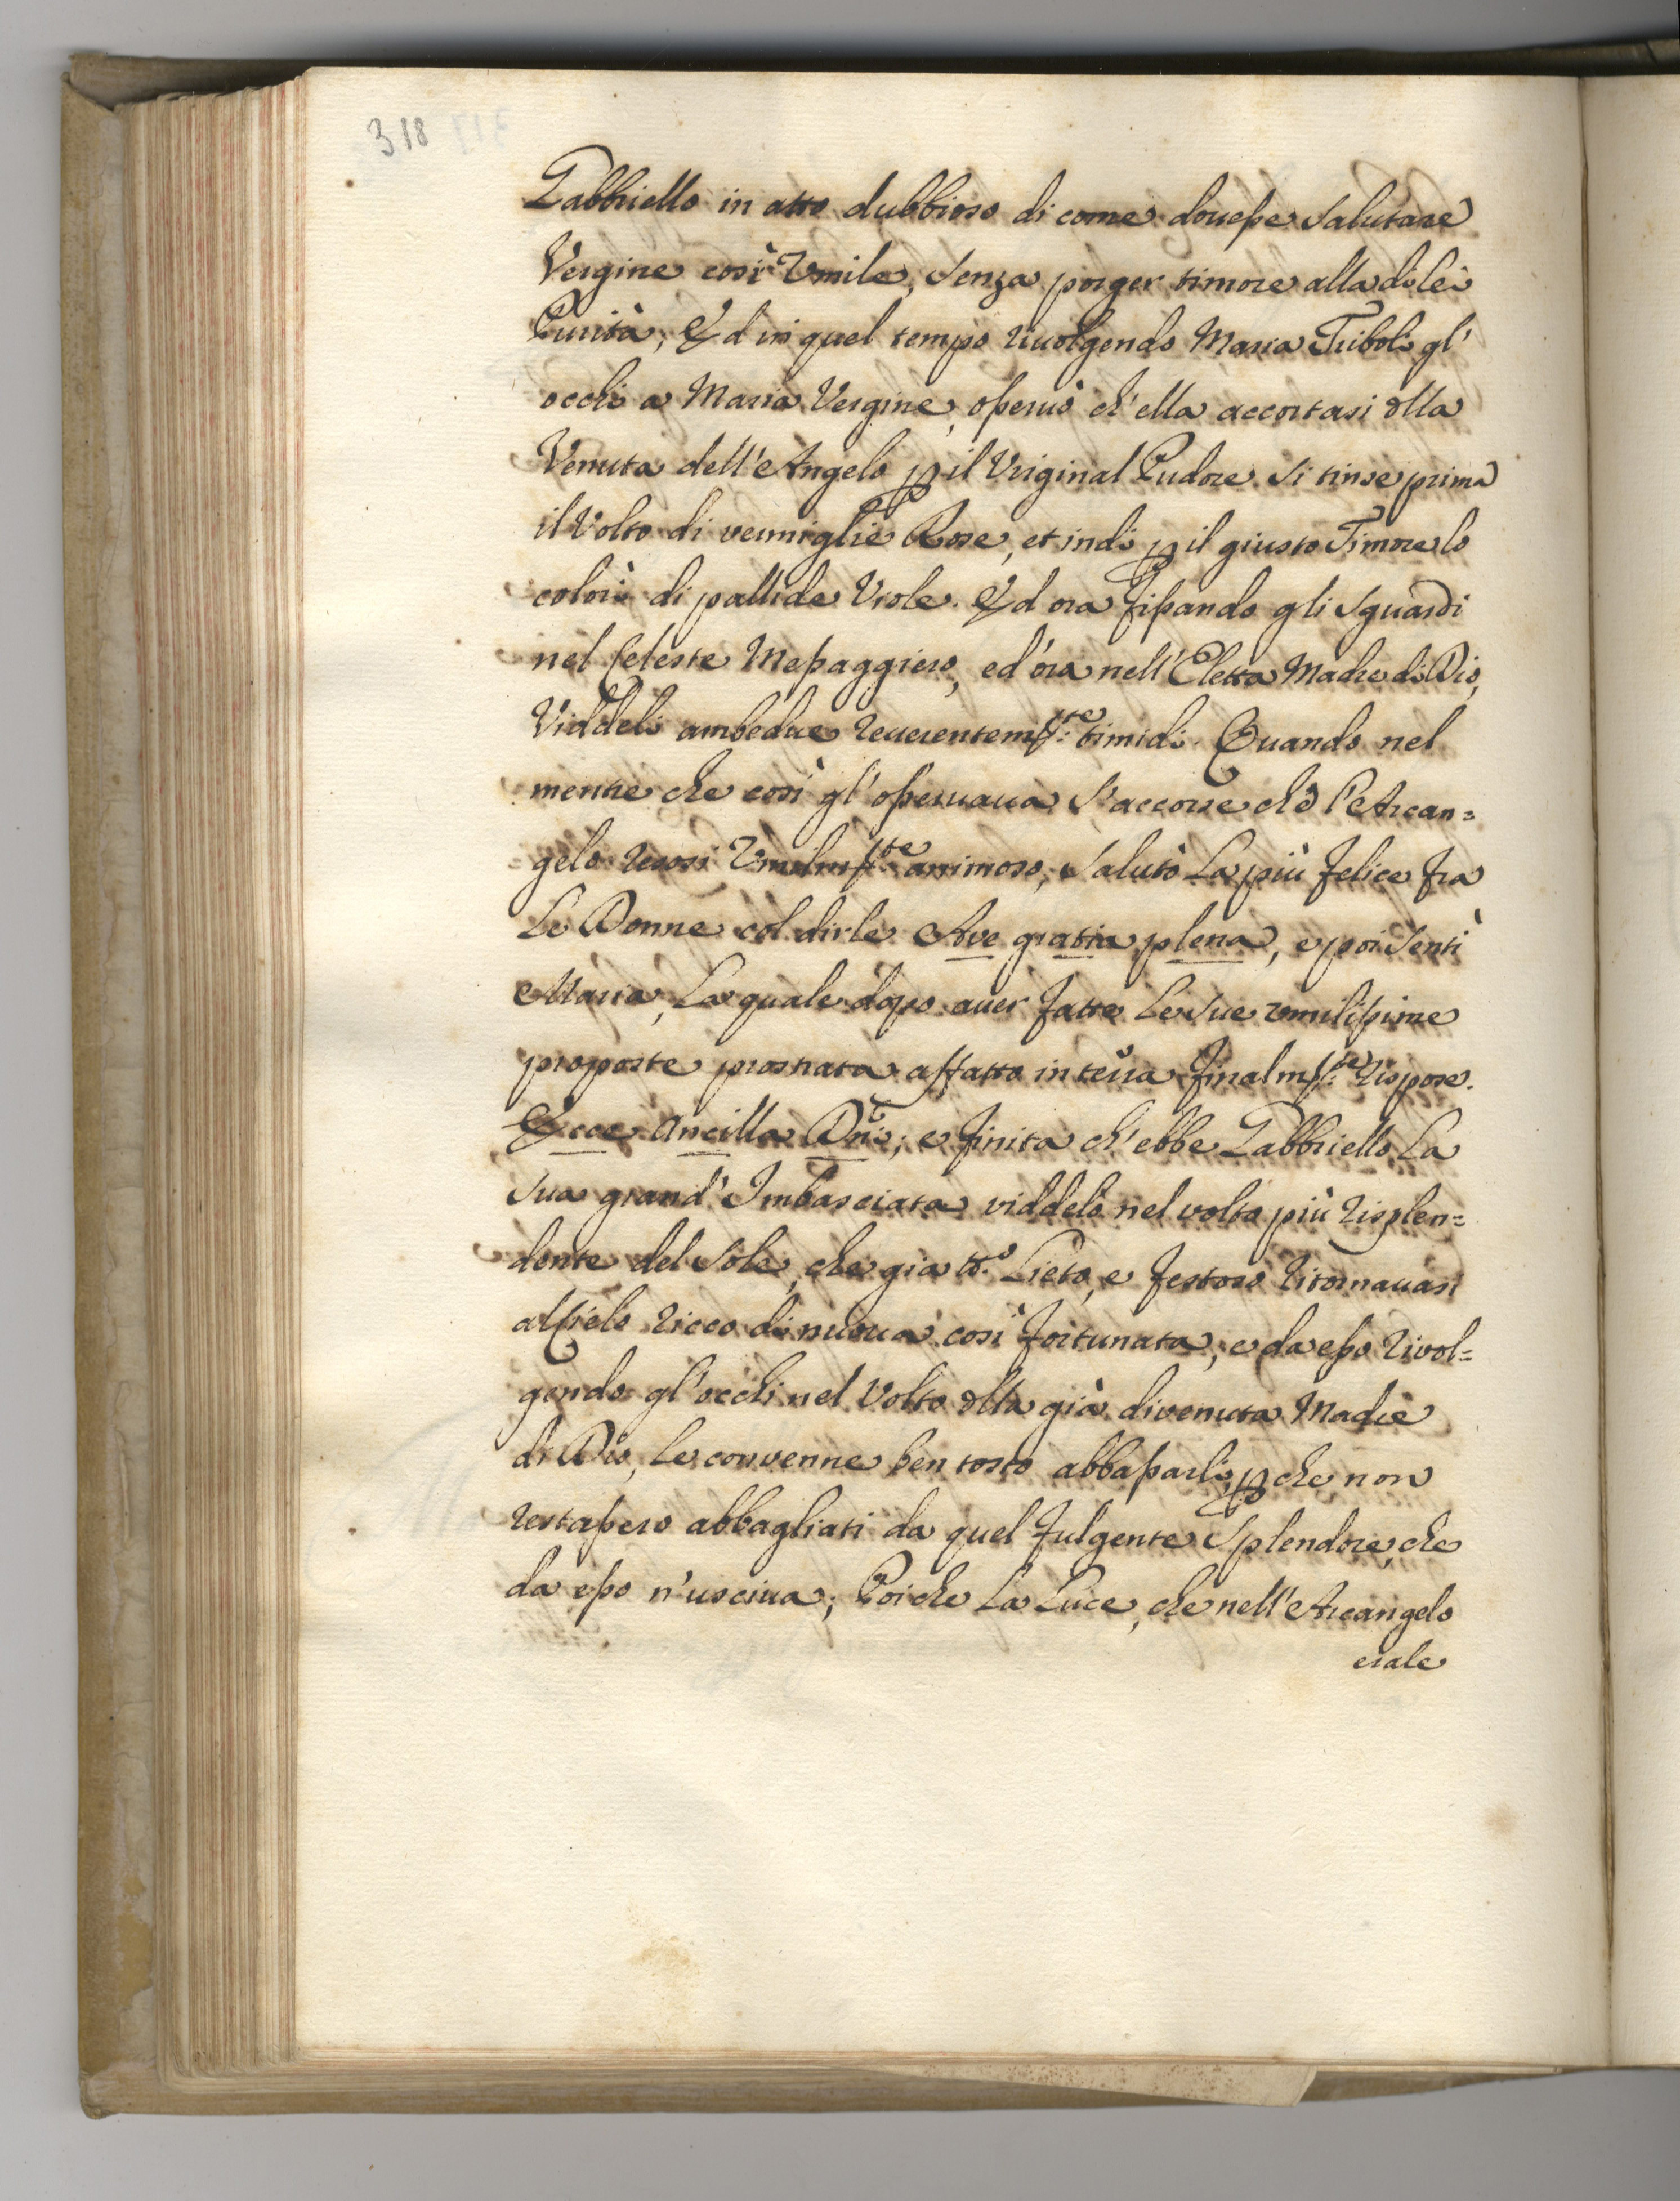 318
Gabbriello in atto dubbioso di come douesse salutare
Vergine così Vmile, senza porger timore alla di lei
Purità, Ed in quel tempo riuolgendo Maria Triboli gl'
occhi a Maria Vergine, osseruò ch'ella accortasi dlla
Venuta dell'Angelo p il Virginal Pudore si tinse prima
il Volto di vermiglie Rose, et indi p il giusto Timore lo
colorì di pallide Viole. Ed ora fissando gli sguardi
nel Celeste Messaggiero, ed'ora nell'Eletta Madre di Dio,
Viddeli ambedue reuerentem:te timidi. Quando nel
mentre che così gl'osseruaua s'accorse chè l'Arcan=
gelo resosi Vmilm:te animoso, salutò La più felice fra
Le Donne col dirle Ave gratia plena, e poi sentì
Maria, La quale dopo auer fatte Le sue vmilissime
proposte prostrata affatto in terra finalm:te rispose.
Ecce Ancilla Dni; e finita ch'ebbe Gabbriello La
sua grand'Imbasciata viddelo nel volto più risplen=
dente del Sole, che gia tt.o Lieto, e festoso ritornauasi
al Cielo ricco di nuoua così fortunata, e da esso rivol=
gendo gl'occhi nel Volto dlla già divenuta Madre
di Dio, Le convenne ben tosto abbassarli, pche non
restassero abbagliati da quel fulgente Splendore, che
da esso n'usciua, Poiche La Luce, che nell'Arcangelo
erale